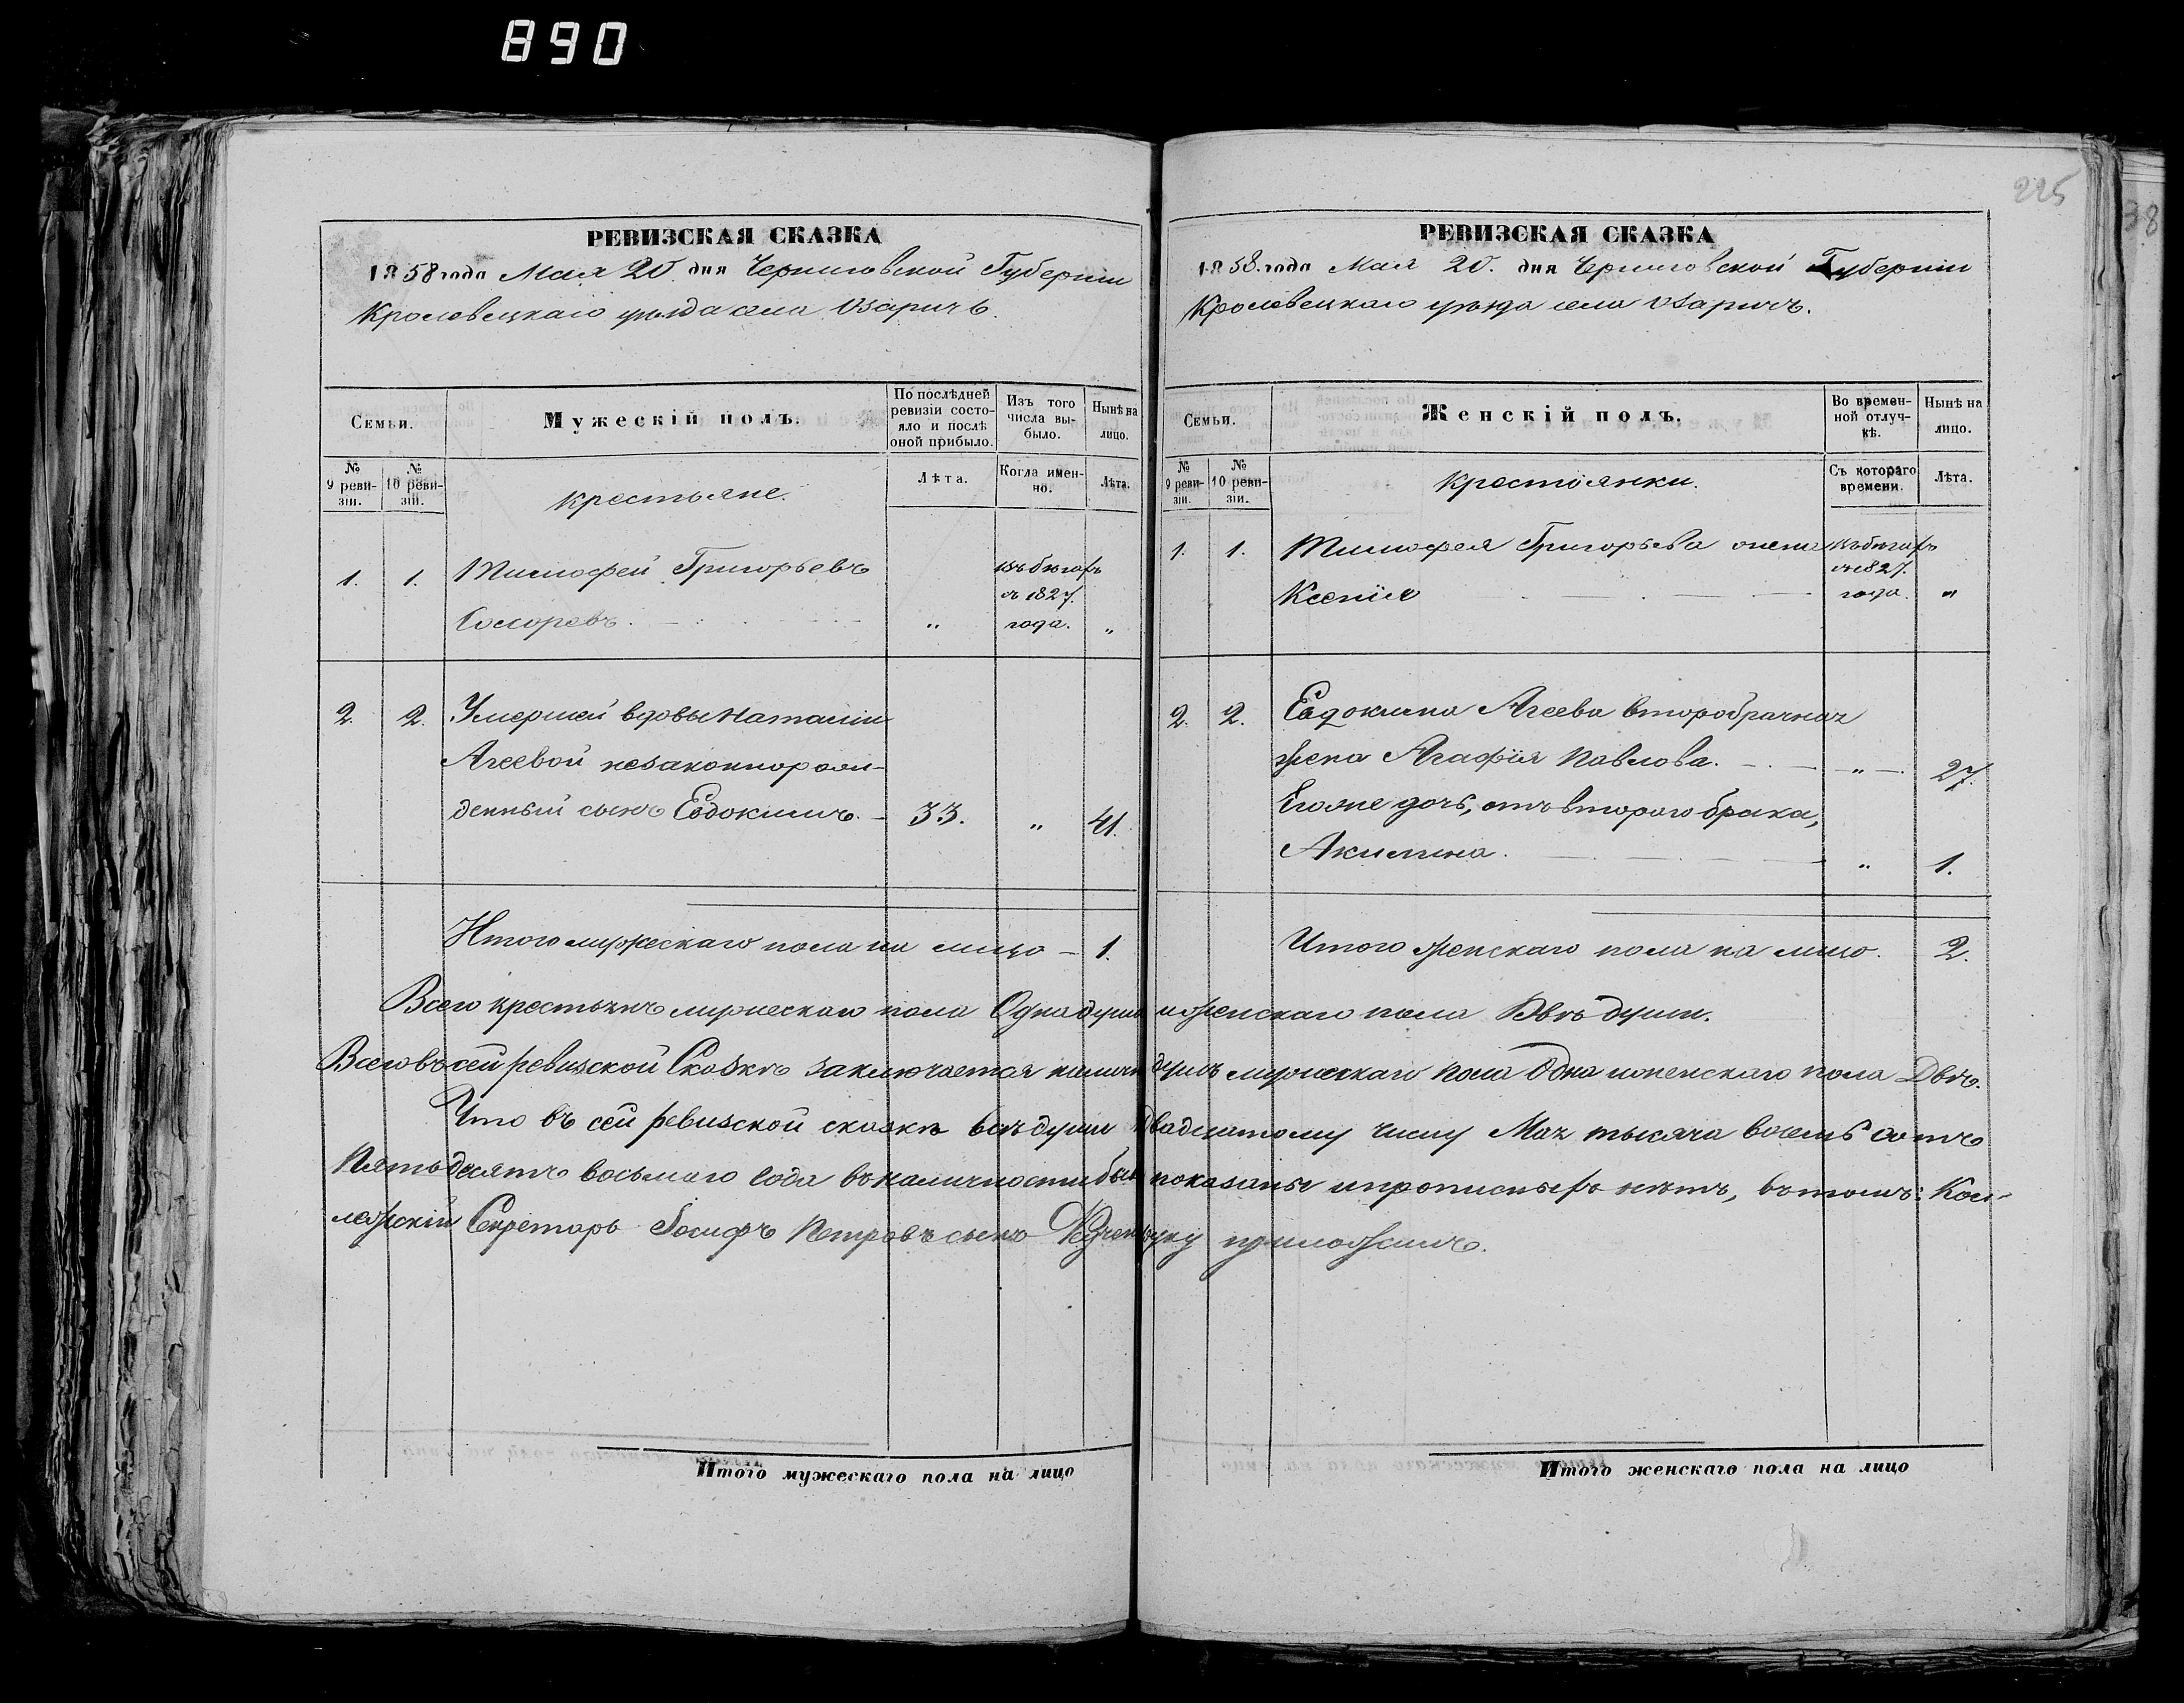 890
225
38
РЕВИЗСКАЯ СКАЗКА
1858 года Мая 20. дня Черниговской Губерніи
Кролевецкаго уѣзда села Озаричъ.
Семьи.
Мужескій полъ.
По послѣдней ревизіи состояло и послѣ оной прибыло.
Изъ того числа выбыло.
Нынѣ на лицо.
№ 9 ревизіи.
№ 10 ревизіи.
Крестьяне.
Лѣта.
Когда именно.
Лѣта.
1. 1. Тимофей Григорьевъ въ бѣгахъ
съ 1827.
" года. "
2. 2. Умершей вдовы Наталіи
Агеевой незаконнорож-
денный сынъ Евдокимъ. 33. " 41.
Итого мужескаго пола на лицо – 1.
РЕВИЗСКАЯ СКАЗКА
1858. года Мая 20. дня Черниговской Губерніи
Кролевецкаго уѣзда села Озаричъ.
Семьи.
Женскій полъ.
Во временной отлучкѣ.
Нынѣ на лицо.
№ 9 ревизіи.
№ 10 ревизіи.
Крестьянки.
Съ котораго времени.
Лѣта.
1. 1. Тимофея Григорьева жена въ бѣгахъ
съ 1827.
Ксенія года. "
2. 2. Евдокима Агеева второбрачная
жена Агафія Павлова. " 27.
Его же дочь, отъ второго брака,
Акилина. " 1.
Итого женскаго пола на лицо. 2.
Всего крестьянъ мужескаго пола Одна душа и женскаго пола Двѣ души.
Всего въ сей ревизской Сказкѣ заключается налично душъ мужескаго пола Одна и женскаго пола Двѣ.
Что въ сей ревизской сказкѣ всѣ души Двадцатому числу Мая тысяча восемь сотъ
Пятьдесятъ восьмаго Года въ наличности бывшія показаны и прописныхъ нѣтъ, въ томъ: Кол-
лежскій Секретарь Іосифъ Петровъ сынъ руку приложилъ.
Итого мужескаго пола на лицо
Итого женскаго пола на лицо